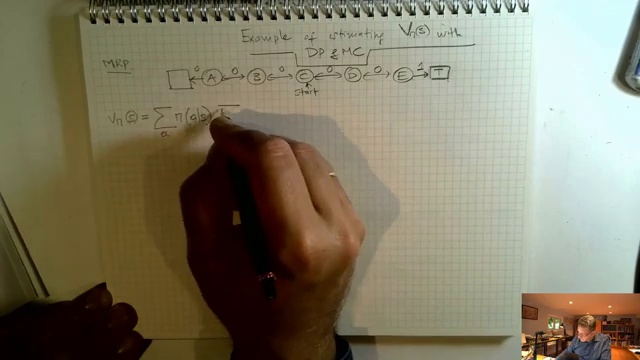 Example of estimating Vπ(s) with
DP & MC
MRP
0 A 0 B 0 C 0 D 0 E 1 T
Start
Vπ(s) = Σ π(a|s)
a